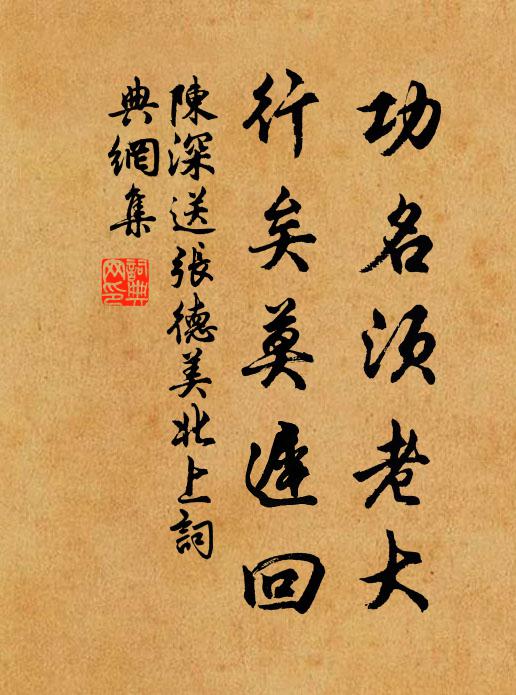 功名須老大
行矣莫遲回
陳深送張德美北上詞
典網集
詞典網印